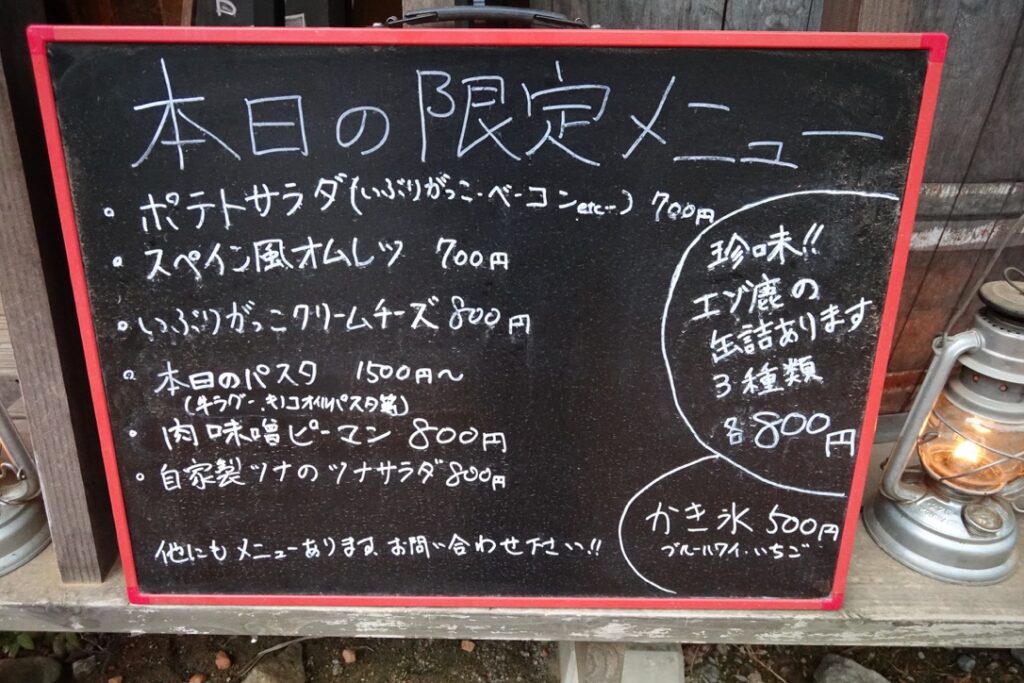 本日の限定メニュー
・ポテトサラダ(いぶりがっこ・ベーコンetc…) 700円
・スペイン風オムレツ 700円
・いぶりがっこクリームチーズ 800円
・本日のパスタ 1500円〜
(牛ラグー、キノコオイルパスタ等)
・肉味噌ピーマン 800円
・自家製ツナのツナサラダ 800円
他にもメニューあります、お問い合わせ下さい!!
珍味!!
エゾ鹿の
缶詰あります
3種類
各800円
かき氷 500円
ブルーハワイ・いちご